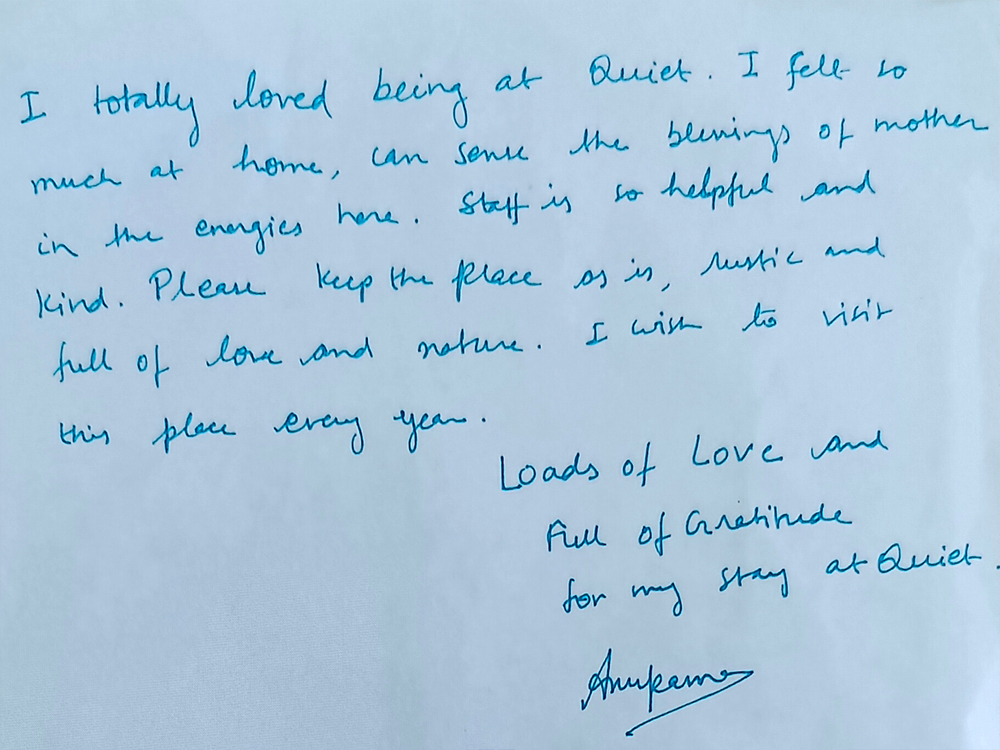 I totally loved being at Quiet. I felt so
much at home, can sense the blessings of mother
in the energies here. Staff is so helpful and
kind. Please keep the place as is, rustic and
full of love and nature. I wish to visit
this place every year.
Loads of Love and
Full of Gratitude
for my stay at Quiet.
Anupama